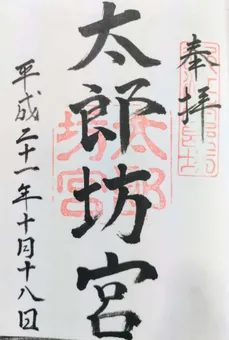 奉拝
太郎坊宮
平成二十一年十月十八日